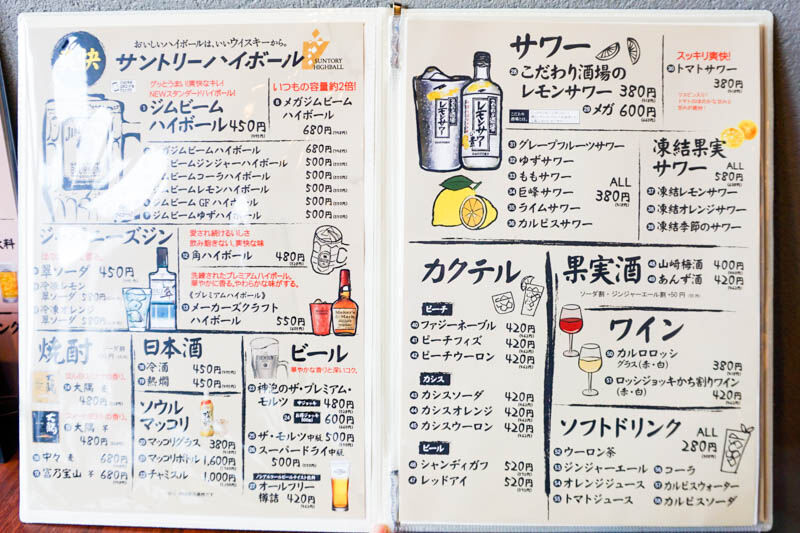 おいしいハイボールは、いいウイスキーから。
サントリーハイボール
SUNTORY
HIGHBALL
グッとうまい!爽快なキレ!
NEWスタンダードハイボール!
ジムビーム
ハイボール 450円
いつもの容量約2倍!
メガジムビーム
ハイボール
680円
ガジムビームハイボール 680円
ジムビームジンジャーハイボール 500円
ジムビームコーラハイボール 500円
ジムビームレモンハイボール 500円
ジムビームGFハイボール 500円
ジムビームゆずハイボール 500円
ーズジン
翠ソーダ 450円
冷凍レモン
翠ソーダ 580円
冷凍オレンジ
翠ソーダ 580円
愛され続けるいしさ
飲み飽きない。爽快な味
12 角ハイボール 480円
洗練されたプレミアムハイボール。
華やかに香る。やわらかな味がする。
《プレミアムハイボール》
13 メーカーズクラフト
ハイボール 550円
焼酎
14 大隅 麦
480円
15 大隅 芋
480円
16 中々 麦 680円
17 富乃宝山 芋 680円
日本酒
18 冷酒 450円
19 熱燗 450円
ソウル
マッコリ
20 マッコリグラス 380円
21 マッコリボトル 1,600円
22 チャミスル 1,000円
ビール
華やかな香りと深いコク。
23 神泡のザ・プレミアム・
モルツ 中ジョッキ 480円
24 600円
25 ザ・モルツ中瓶 500円
26 スーパードライ中瓶
500円
ノンアルコールビールテイスト飲料
27 オールフリー
樽詰 420円
サワー
28 こだわり酒場の
レモンサワー 380円
29 メガ 600円
スッキリ爽快!
30 トマトサワー
380円
31 グレープフルーツサワー
32 ゆずサワー
33 ももサワー
34 巨峰サワー
35 ライムサワー
36 カルピスサワー
ALL
380円
凍結果実
サワー ALL
580円
37 凍結レモンサワー
38 凍結オレンジサワー
39 凍結季節のサワー
カクテル
ピーチ
40 ファジーネーブル 420円
41 ピーチフィズ 420円
42 ピーチウーロン 420円
カシス
43 カシスソーダ 420円
44 カシスオレンジ 420円
45 カシスウーロン 420円
ビール
46 シャンディガフ 520円
47 レッドアイ 520円
果実酒
ソーダ割・ジンジャーエール割+50円
48 山崎梅酒 400円
49 あんず酒 420円
ワイン
50 カルロロッシ
グラス(赤・白) 380円
51 ロッシジョッキかち割りワイン
(赤・白) 420円
ソフトドリンク ALL
280円
52 ウーロン茶
53 ジンジャーエール
54 オレンジジュース
55 トマトジュース
56 コーラ
57 カルピスウォーター
58 カルピスソーダ